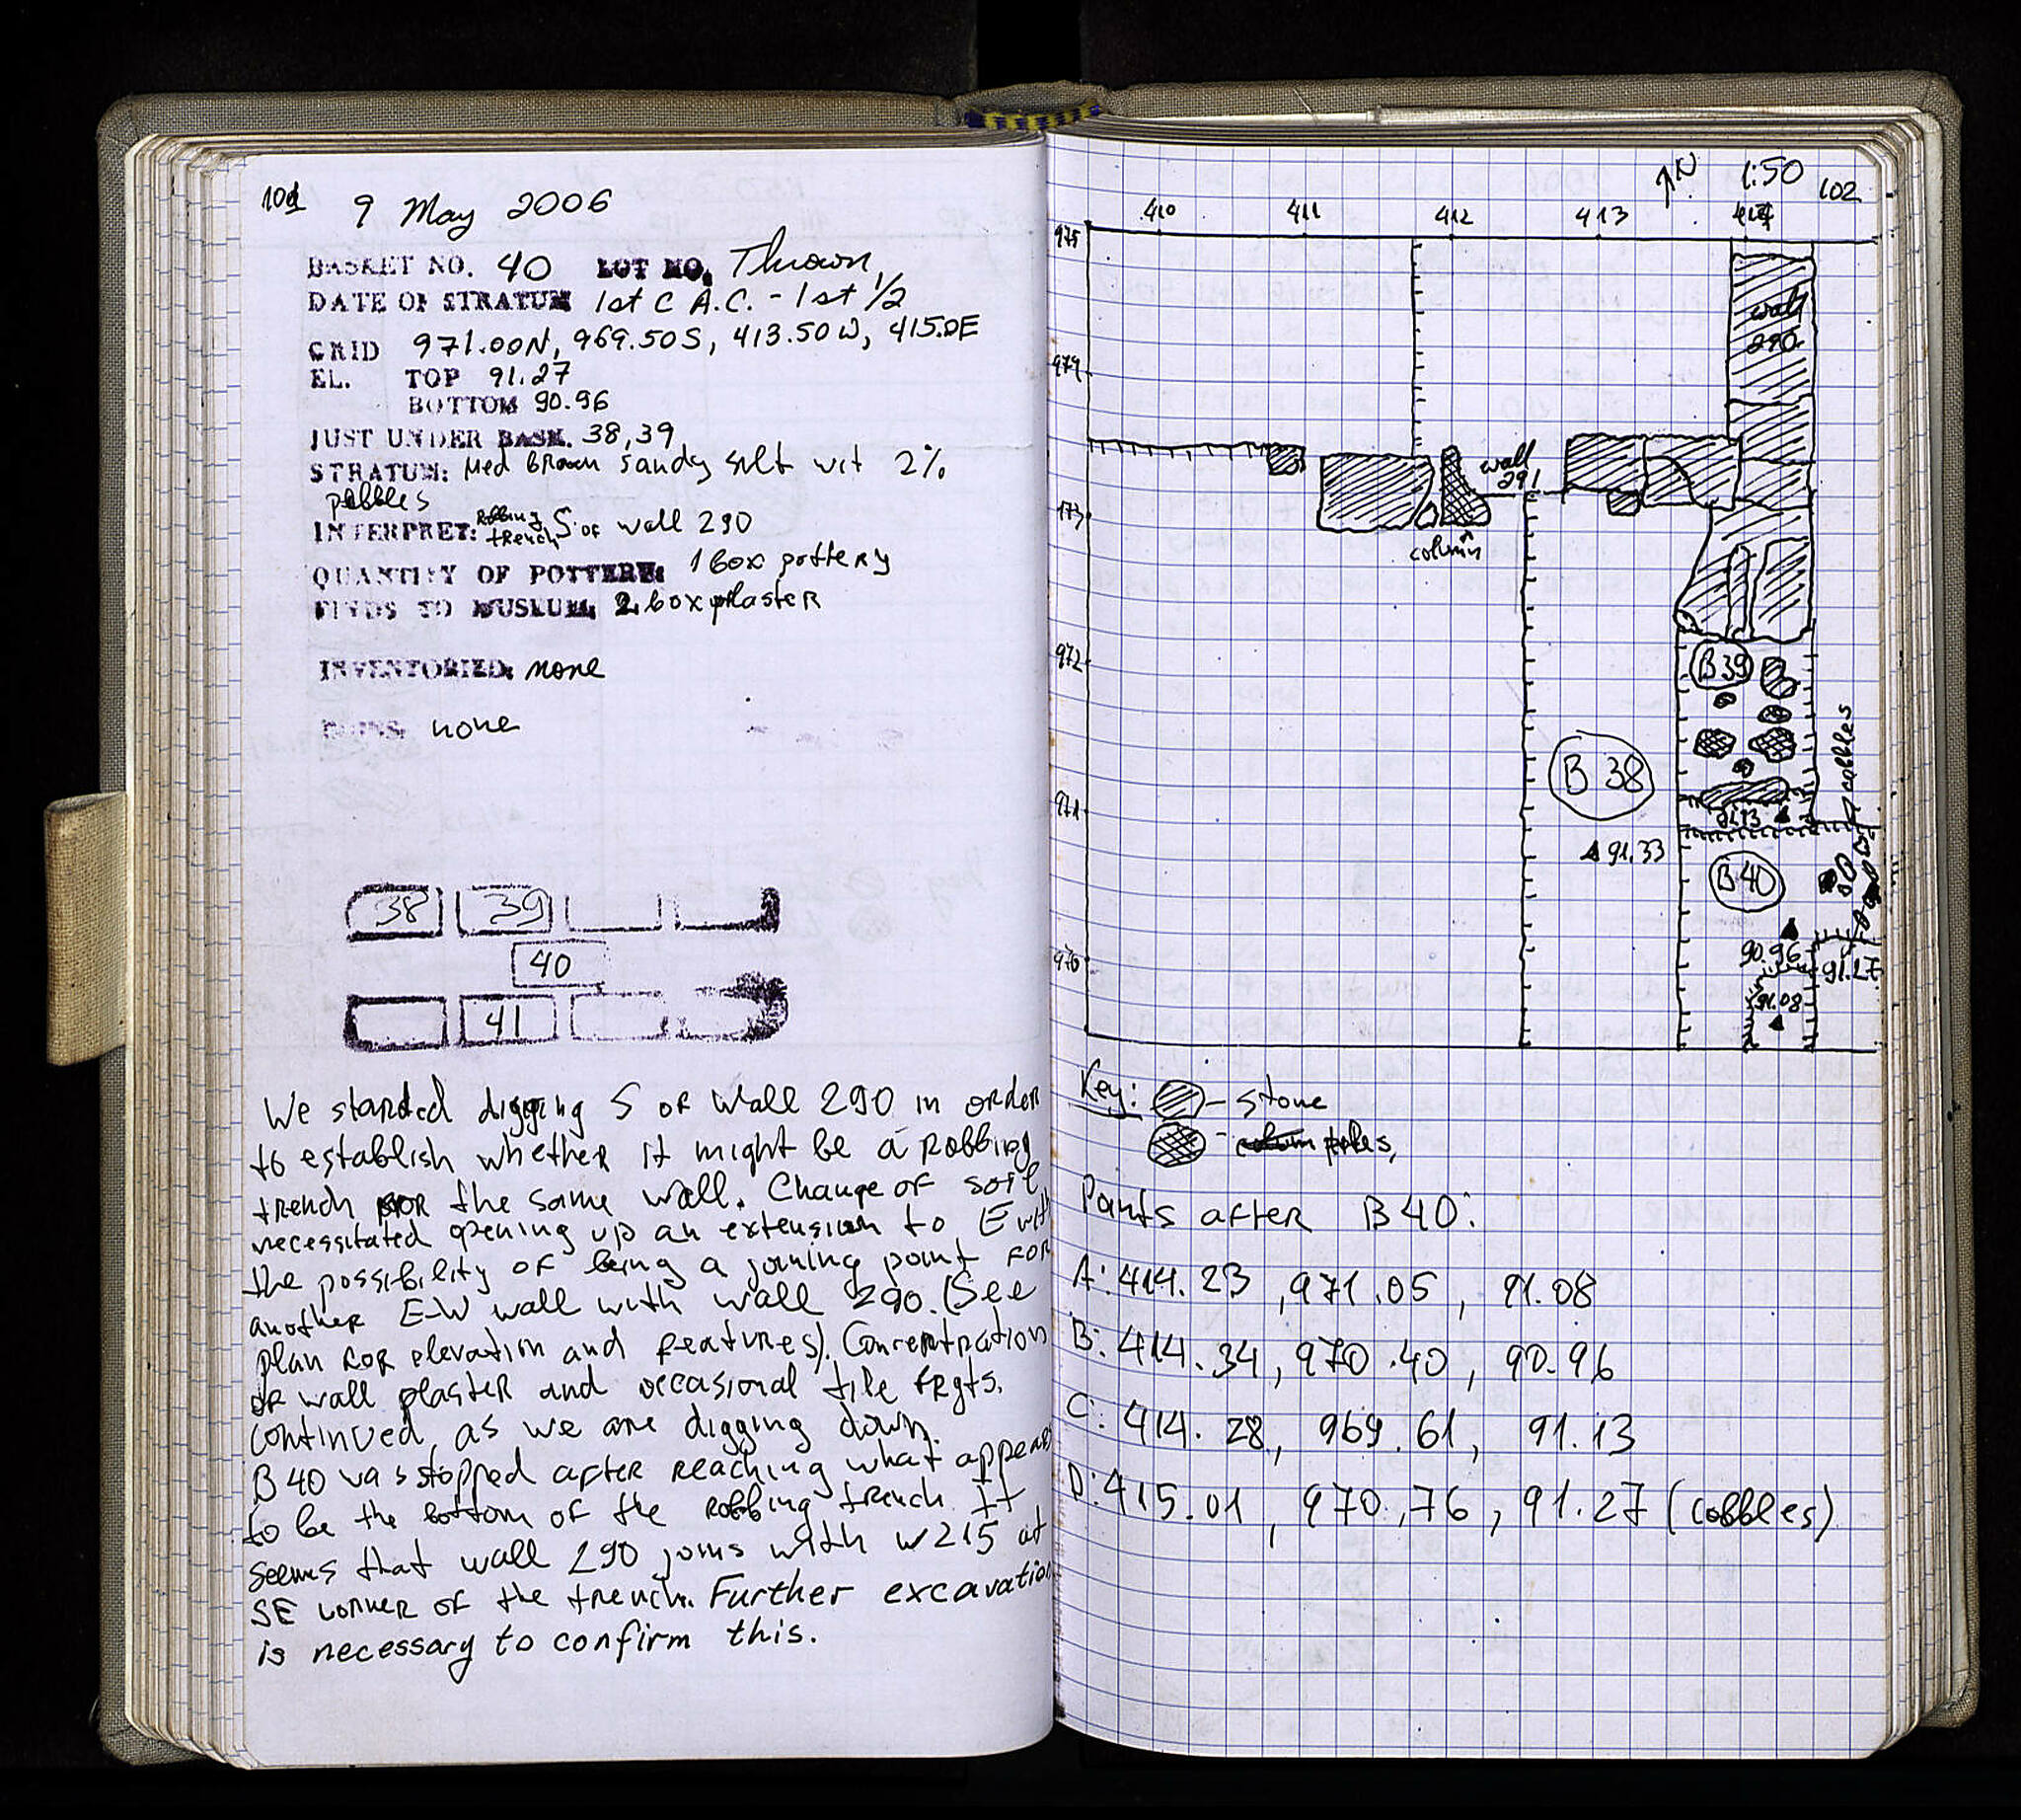 101
9 May 2006
BASKET NO. 40 LOT NO. Thrown
DATE OF STRATUM 1st C A.C. - 1st 1/2
GRID 971.00N, 969.50S, 413.50W, 415.0E
EL. TOP 91.27
BOTTOM 90.96
JUST UNDER BASK. 38,39
STRATUM: Med Brown sandy silt wit 2%
pebbles
INTERPRET: Robbing trench S of wall 290
QUANTITY OF POTTERY: 1 box pottery
FINDS TO MUSEUM: 2 box plaster
INVENTORIED: none
COINS: none
38 39
40
41
We started digging S of Wall 290 in order
to establish whether it might be a robbing
trench for the same wall. Change of soil
necessitated opening up an extension to E with
the possibility of being a joining point for
another E-W wall with wall 290. (See
plan for elevation and features). Concentration
of wall plaster and occasional tile frgts.
continued, as we are digging down.
B 40 was stopped after reaching what appears
to be the bottom of the robbing trench. It
seems that wall 290 joins with W215 at
SE corner of the trench. Further excavation
is necessary to confirm this.
N 1:50 102
410 411 412 413 414
975
wall
290
974
wall
291
973
column
972
B39
cobbles
B 38
971
91.13
91.33
B40
970
90.96
91.27
91.08
Key: - stone
-
Points after B40:
A: 414.23, 971.05, 91.08
B: 414.34, 970.40, 90.96
C: 414.28, 969.61, 91.13
D: 415.01, 970.76, 91.27 (cobbles)